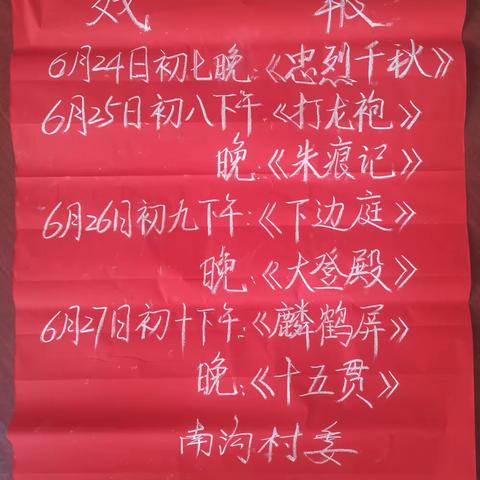 戏 报
6月24日初七晚:《忠烈千秋》
6月25日初八下午《打龙袍》
晚:《朱痕记》
6月26日初九下午:《下边庭》
晚:《大登殿》
6月27日初十下午:《麟鹤屏》
晚:《十五贯》
南沟村委